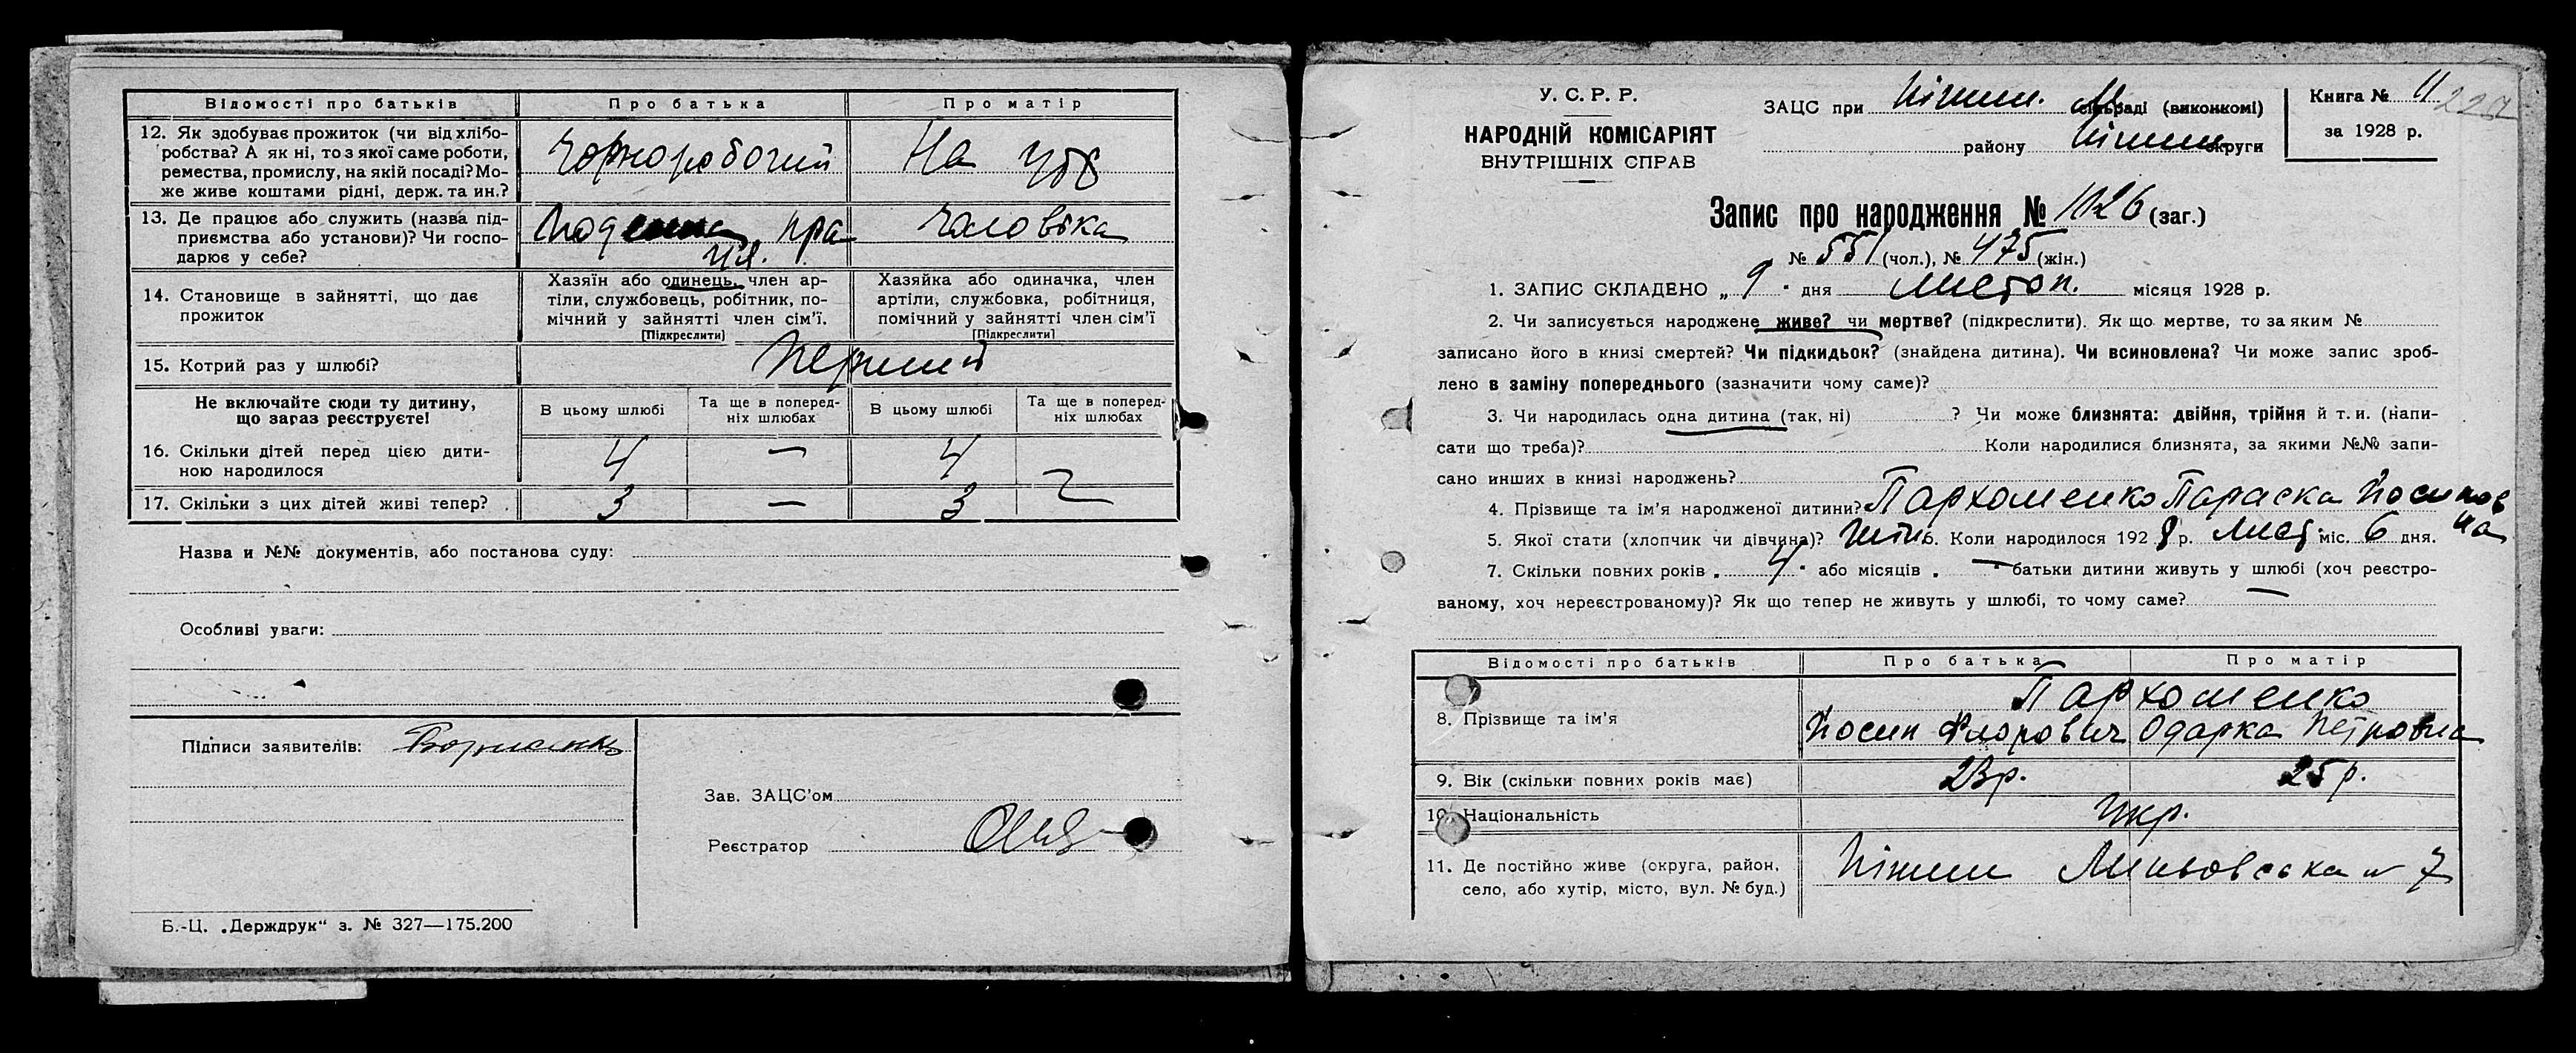 Відомості про батьків Про батька Про матір
12. Як здобуває прожиток (чи від хлібо-
робства? А як ні, то з якої саме роботи,
ремества, промислу, на якій посаді? Мо-
же живе коштами рідні, держ. та ин.?
Чорноробочий На утр
13. Де працює або служить (назва під-
приємства або установи)? Чи госпо-
дарює у себе?
Поденна пра
ця. Чоловіка
14. Становище в зайнятті, що дає
прожиток
Хазяїн або одинець, член ар-
тіли, службовець, робітник, по-
мічний у зайнятті член сім'ї.
[Підкреслити]
Хазяйка або одиначка, член
артіли, службовка, робітниця,
помічний у зайнятті член сім'ї
[Підкреслити]
15. Котрий раз у шлюбі? Перший
Не включайте сюди ту дитину,
що зараз реєструєте!
В цьому шлюбі Та ще в поперед-
ніх шлюбах В цьому шлюбі Та ще в поперед-
ніх шлюбах
16. Скільки дітей перед цією дити-
ною народилося 4 — 4
17. Скільки з цих дітей живі тепер? 3 — 3
Назва и №№ документів, або постанова суду:
Особливі уваги:
Підписи заявителів:
Зав. ЗАЦС'ом
Реєстратор
Б.-Ц. „Держдрук“ з. № 327—175.200
У. С. Р. Р.
НАРОДНІЙ КОМІСАРІЯТ
ВНУТРІШНІХ СПРАВ
ЗАЦС при Ніжин. М сільраді (виконкомі)
району Ніжин округи
Книга № 11
за 1928 р.
227
Запис про народження № 1026 (заг.)
№ 551 (чол.), № 475 (жін.)
1. ЗАПИС СКЛАДЕНО „9“ дня листоп. місяця 1928 р.
2. Чи записується народжене живе? чи мертве? (підкреслити). Як що мертве, то за яким №
записано його в книзі смертей? Чи підкидьок? (знайдена дитина). Чи всиновлена? Чи може запис зроб-
лено в заміну попереднього (зазначити чому саме)?
3. Чи народилась одна дитина (так, ні) ? Чи може близнята: двійня, трійня й т. и. (напи-
сати що треба)? Коли народилися близнята, за якими №№ запи-
сано инших в книзі народжень?
4. Прізвище та ім'я народженої дитини? Пархоменко Параска Йосипов
на
5. Якої стати (хлопчик чи дівчина)? жін. 6. Коли народилося 1928 р. лист. міс. 6 дня.
7. Скільки повних років „4“ або місяців „—“ батьки дитини живуть у шлюбі (хоч реєстро-
ваному, хоч нереєстрованому)? Як що тепер не живуть у шлюбі, то чому саме? —
Відомості про батьків Про батька Про матір
8. Прізвище та ім'я Пархоменко
Йосип Флорович Одарка Петровна
9. Вік (скільки повних років має) 23р. 25р.
10. Національність Укр.
11. Де постійно живе (округа, район,
село, або хутір, місто, вул. № буд.)
Ніжин 7